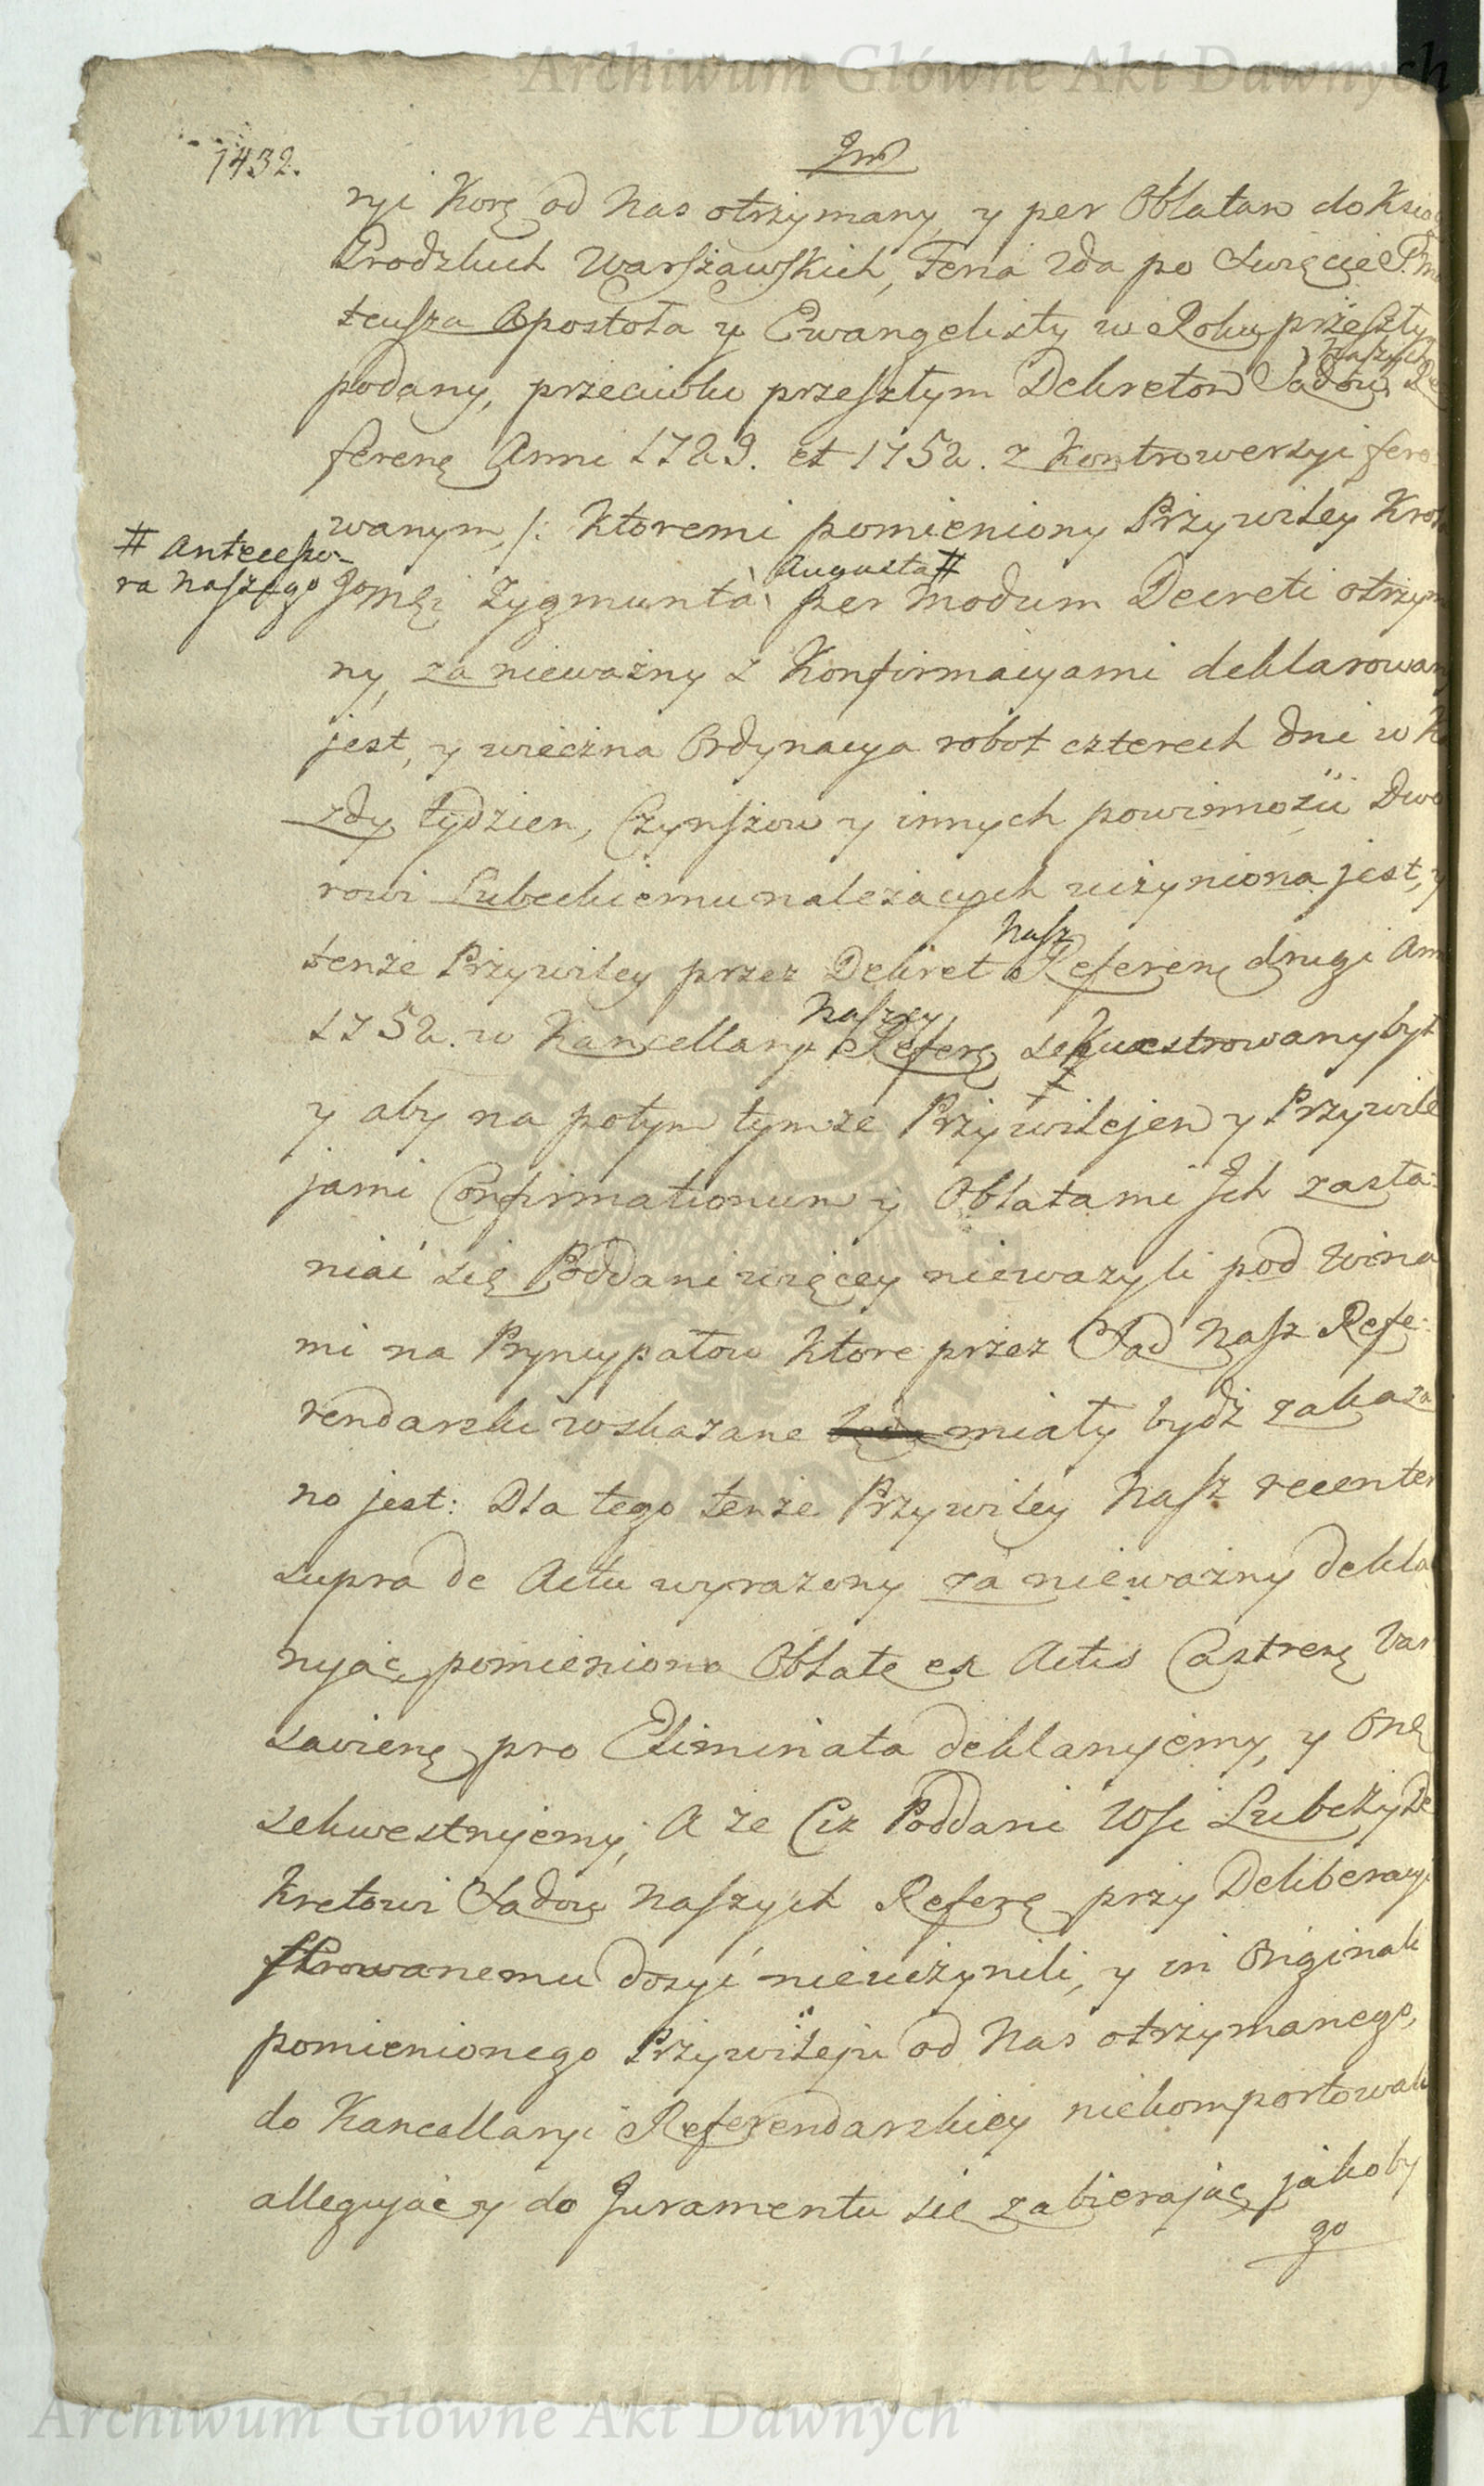 Archiwum Główne Akt Dawnych
1432.
ryi Korę od Nas otrzymany, y per Oblatam do Ksiąg
Grodzkich Warszawskich, Feria 2da po Święcie S. Ma
teusza Apostoła y Ewangelisty w Roku przeszły
podany, przeciwko przeszłym Dekretom Sądow Naszych Re
ferenę Anni 1729. et 1752. z Kontrowersyi fero
wanym, /: ktoremi pomieniony Przywiley Kro
# Antecesso-
ra Naszego
Jomęi Zygmunta Augusta # per modum Decreti otrzym
ny, za nieważny z Konfirmacyami deklarowan
jest, y wieczna Ordynacya robot czterech dni w ka
zdy tydzien, Czynszow y innych powinnosci Dwo
rowi Lubeckiemu nalezacych uczyniona jest, y
tenze Przywiley przez Dekret Nasz Referenę drugi Ann
1752. w Kancellaryi Naszey Referę sekwestrowany był
y aby na potym tymze Przywilejem y Przywile
jami Confirmationum y Oblatami Ich zasta-
niać się Poddani więcey niewazyli pod wina
mi na Pryncypałow ktore przez Sąd Nasz Refe-
rendarski wskazane będą miały bydź zakaza
no jest: Dla tego tenze Przywiley Nasz recenter
supra de Actu wyrazony za nieważny dekla
ryjąc, pomieniona Oblatę ex Actis Castrenę Var
savienę pro Eliminata deklaryjemy, y onę
sekwestryjemy, A że Ciz Poddani Wsi Lubczy De
kretowi Sądow Naszych Referę przy Deliberacyi
ferowanemu dosyć nieuczynili, y in Originali
pomienionego Przywileju od Nas otrzymanego,
do Kancellaryi Referendarskiey niekomportowali
allegując y do Juramentu się zabierając, jakoby
go
Archiwum Główne Akt Dawnych